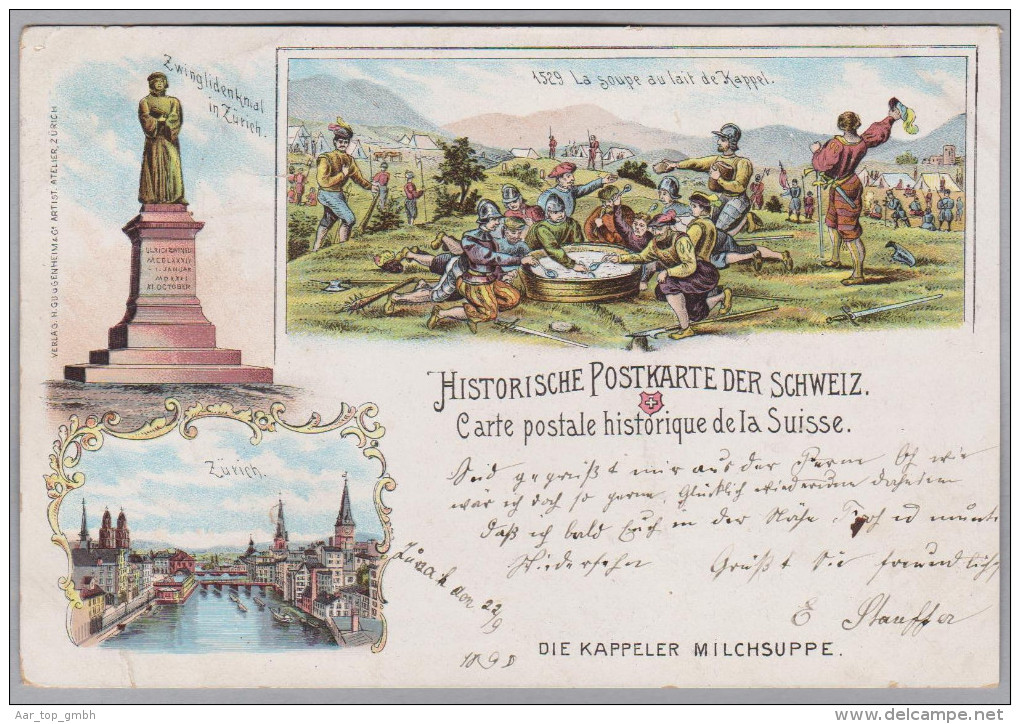 Zwinglidenkmal
in Zürich.
1529 La soupe au lait de Kappel.
VERLAG: H. GUGGENHEIM & Co ARTIST. ATELIER, ZÜRICH
MCDLXXXIV
1. JANUAR
MDXXXI
XI OCTOBER
HISTORISCHE POSTKARTE DER SCHWEIZ.
Carte postale historique de la Suisse.
Zürich.
Seid gegrüßt mir aus der Ferne Oh wie
wär ich doch so gerne, Glücklich wiederum daheim
Daß ich bald Euch in der Nähe Froh und munter
Wiedersehn Grüßt Sie freundlich
Zürich den 22/9
E Stauffer
DIE KAPPELER MILCHSUPPE.
Aar_top_gmbh
delcampe.net